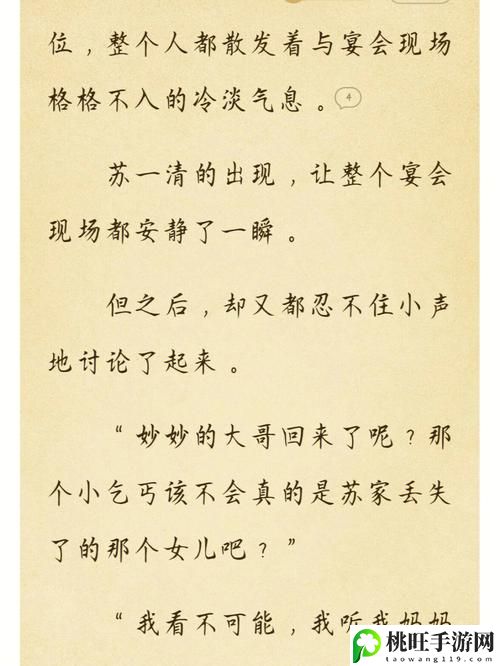 位，整个人都散发着与宴会现场
格格不入的冷淡气息。 4
苏一清的出现，让整个宴会
现场都安静了一瞬。
但之后，却又都忍不住小声
地讨论了起来。
“妙妙的大哥回来了呢？那
个小乞丐该不会真的是苏家丢失
了的那个女儿吧？”
“我看不可能，我听我妈妈
桃旺手游网
taowang119.com